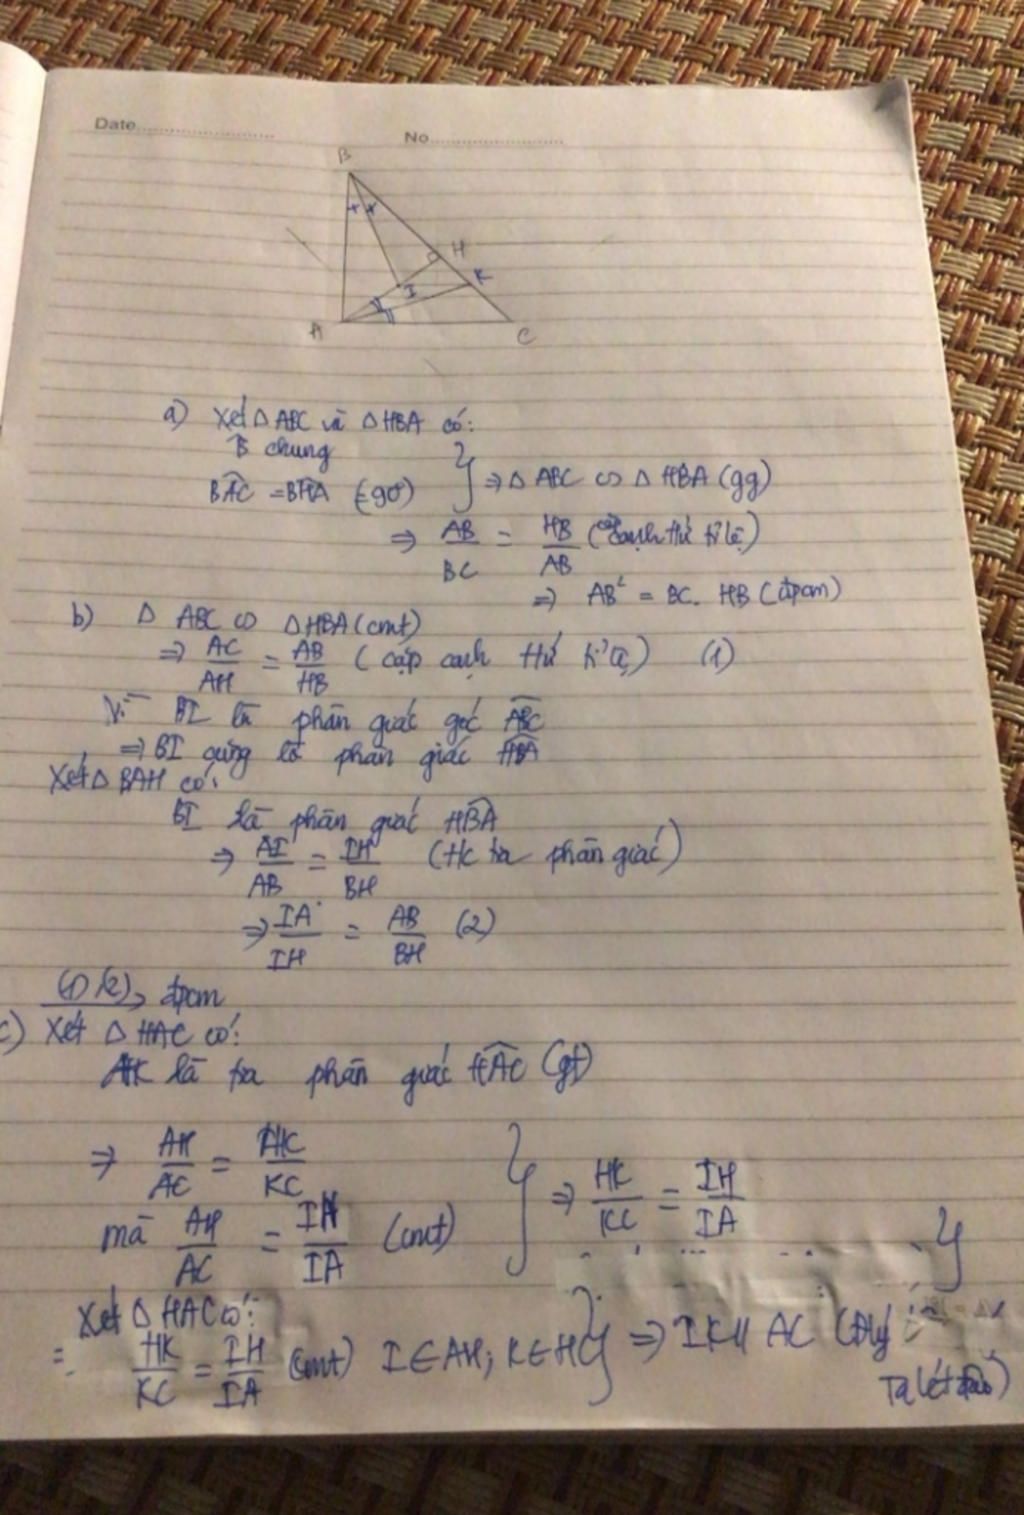 Date
No
B
H
K
I
A
C
a) Xét Δ ABC và Δ HBA có:
B chung
BAC = BHA (=90°)
⇒ Δ ABC ∽ Δ HBA (gg)
⇒ AB/BC = HB/AB (cạnh tứ tỉ lệ)
⇒ AB² = BC. HB (đpcm)
b) Δ ABC ∽ ΔHBA (cmt)
⇒ AC/AH = AB/HB (cặp cạnh tứ tỉ lệ) (1)
Vì BI là phân giác góc ABC
⇒ BI cũng là phân giác HBA
Xét Δ BAH có:
BI là phân giác HBA
⇒ AI/AB = IH/BH (t/c tia phân giác)
⇒ IA/IH = AB/BH (2)
(1)(2) ⇒ đpcm
c) Xét Δ HAC có:
AK là tia phân giác HAC (gt)
⇒ AH/AC = HK/KC
mà AH/AC = IH/IA (cmt)
⇒ HK/KC = IH/IA
Xét Δ HAC có:
HK/KC = IH/IA (cmt) I∈AH; K∈HC ⇒ IK // AC (Đlý
Ta lét đảo)